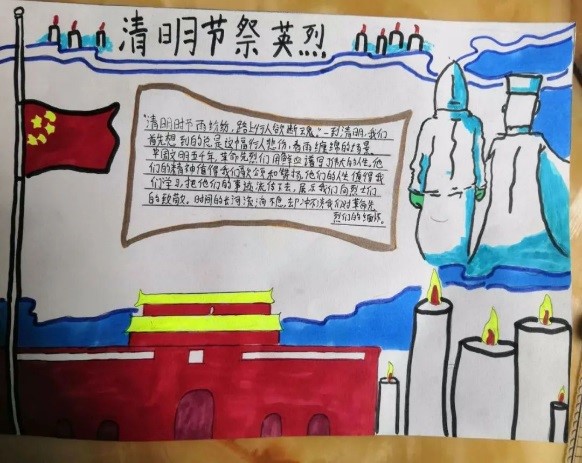 清明节祭英烈
"清明时节雨纷纷，路上行人欲断魂。"一到清明，我们
首先想到的就是这幅行人悲伤，春雨缠绵的情景
华国文明五千年，革命先烈们用鲜血谱写了伟大的人生。他
们的精神值得我们歌颂和赞扬，他们的人生值得我
们学习，把他们的事迹流传下去，展示我们向烈士们
的致敬。时间的长河流淌不息，却冲不淡我们对革命先
烈们的缅怀。